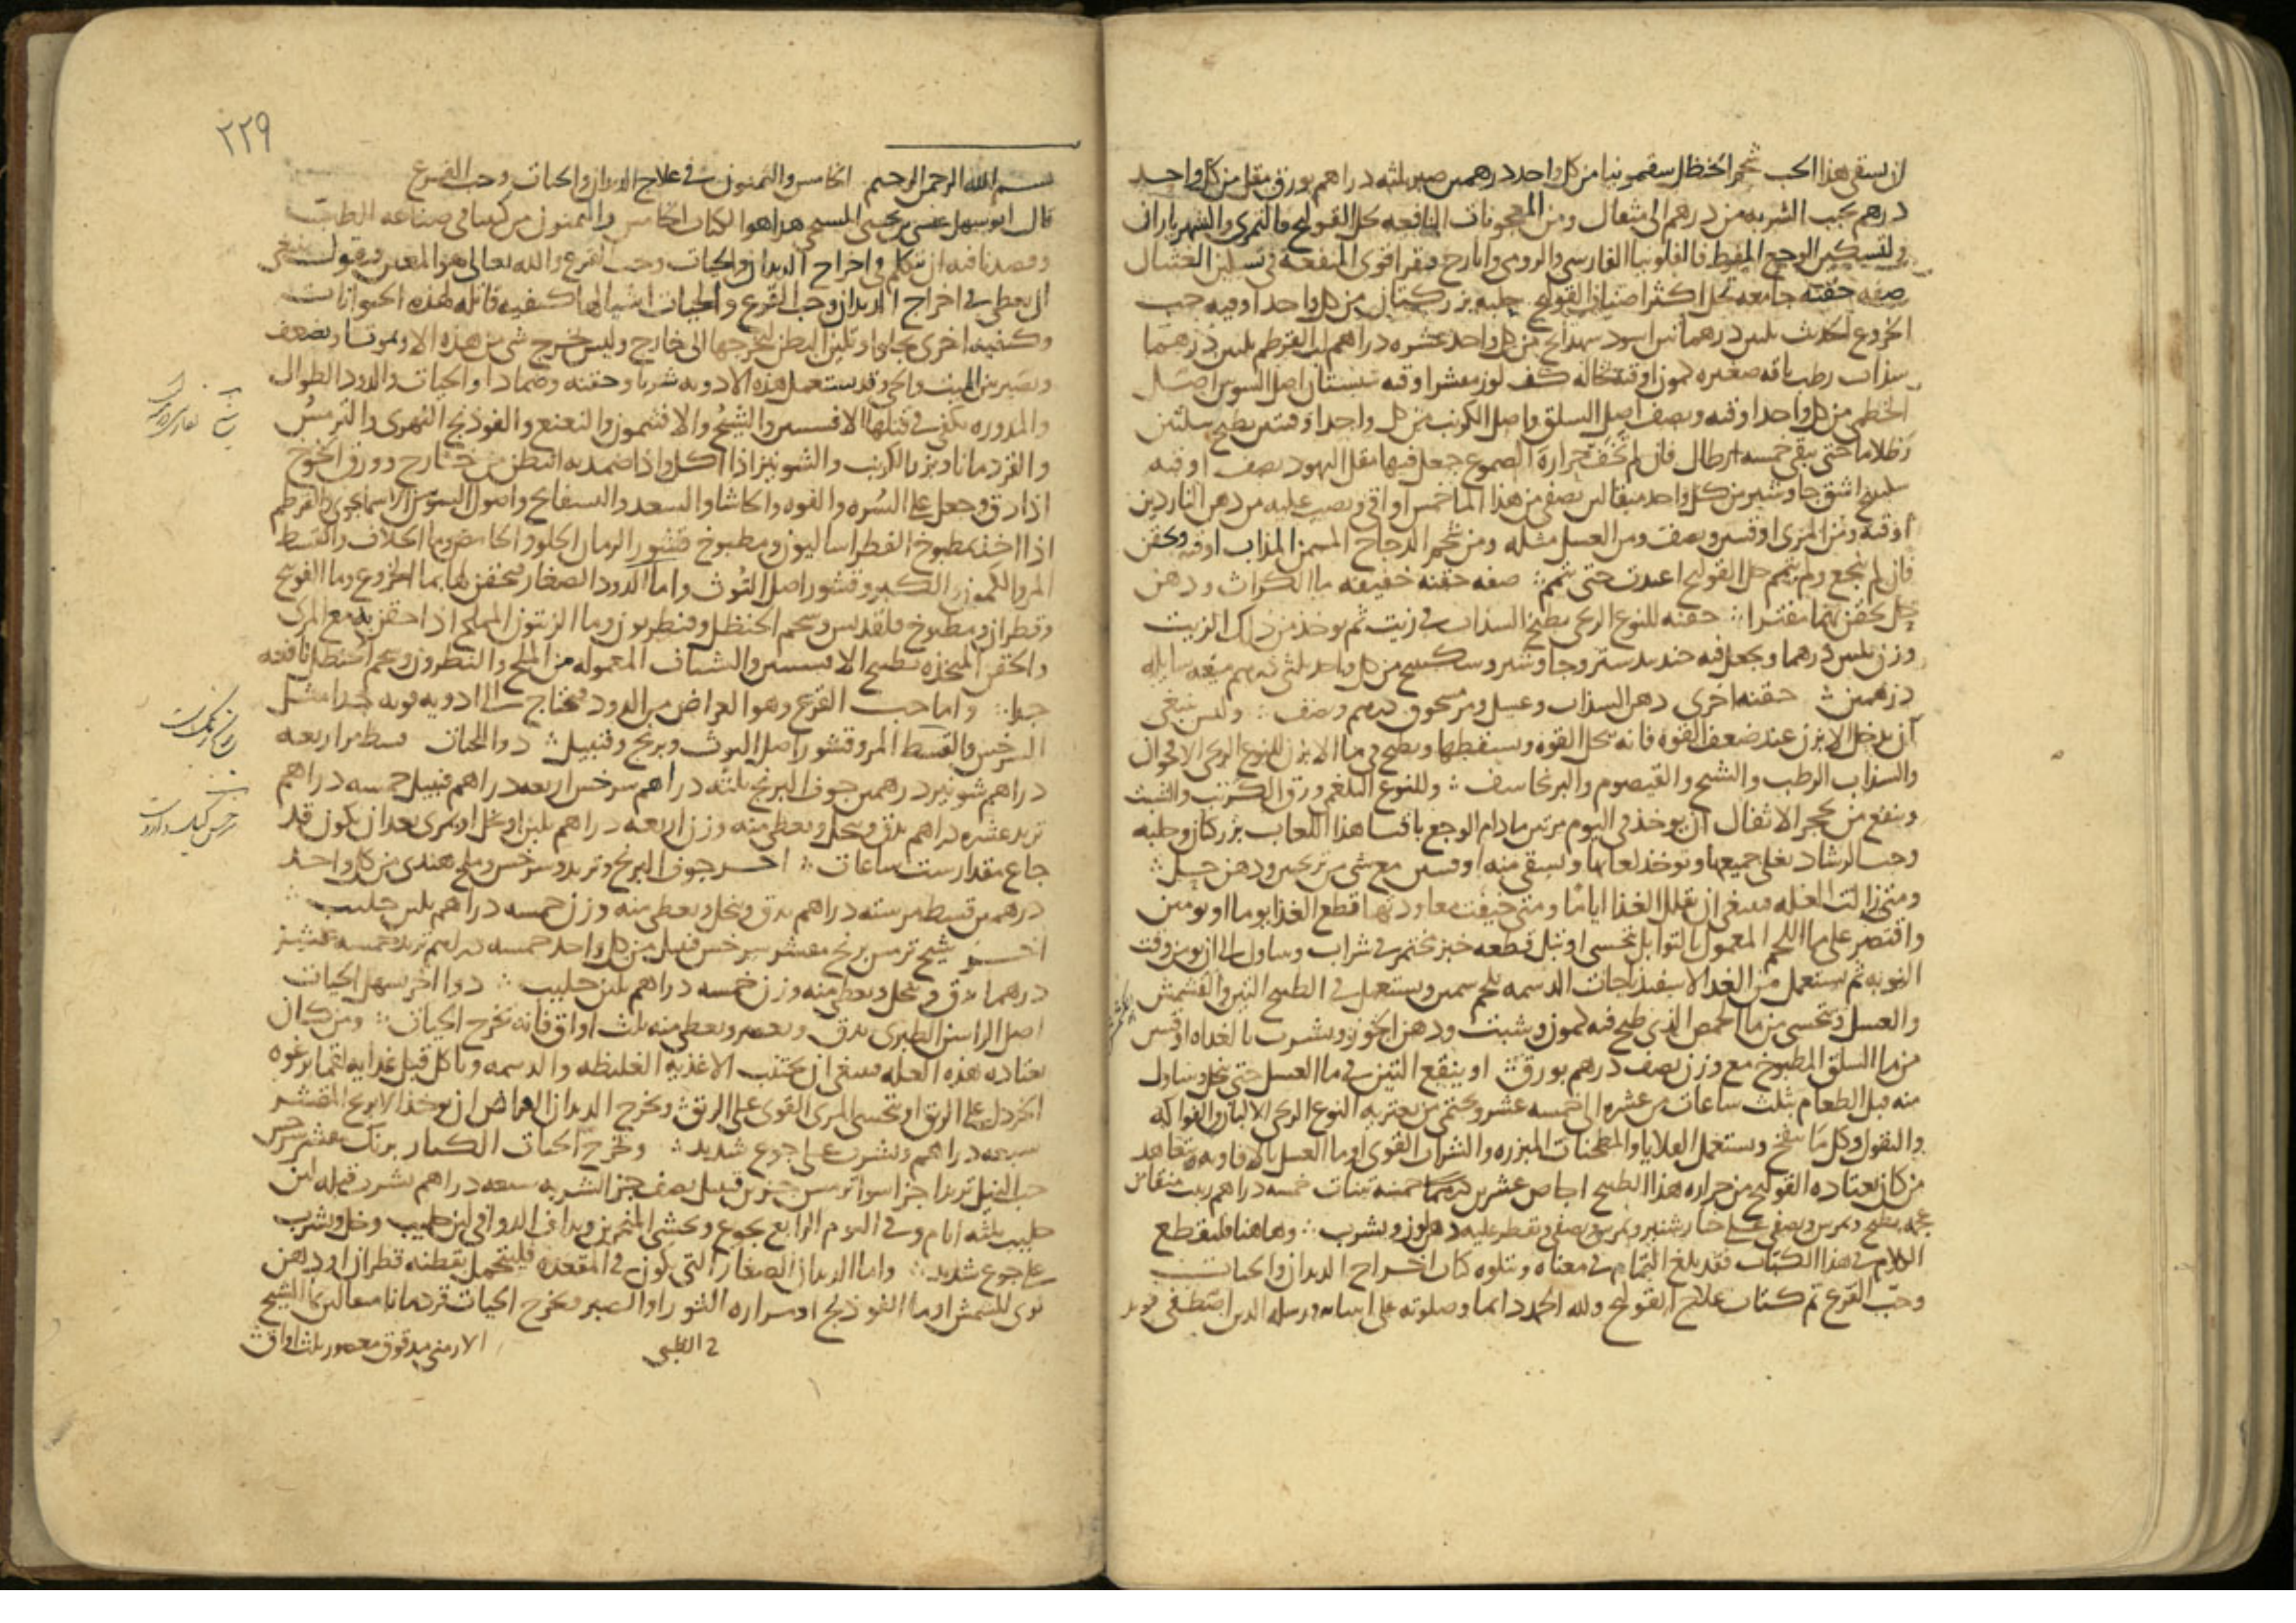 ان يسقى هذا الحب شحم الحنظل سقمونيا من كل واحد درهمين صبر ثلثه دراهم بورق مقل من كل واحد
درهم يحبب الشربه من درهم الى مثقال ومن المعجونات النافعه لحل القولنج فالتمرى والشهرياران
ولتسكين الوجع المفرط فالفلونيا الفارسى والرومى وايارج فيقرا قوى المنفعه فى
صفه حقنه جامعه لحل اكثر اصناف القولنج حلبه بزر كتان من كل واحد اوقيه حب
الخروع الحديث ثلثين درهما تين اسود من كل واحد عشره دراهم لب القرطم ثلثين درهما
سذاب رطب باقه صغيره كمون اوقيه نخاله كف لوز مقشر اوقيه سبستان اصل السوس اصل
الخطمى من كل واحد اوقيه ونصف اصل السلق واصل الكرنب من كل واحد اوقيتين يطبخ بثلثين
رطلا ما حتى يبقى خمسه ارطال فان لم تخف حراره الصموغ جعل فيها مقل اليهود نصف اوقيه
سكبينج اشق جاوشير من كل واحد مثقالين يصفى من هذا الما خمس اواقى ويصب عليه من دهن الناردين
اوقيه ومن المرى اوقيتين ونصف ومن العسل مثله ومن شحم الدجاج المسمن المذاب اوقيه ويحقن
فان لم ينجع ولم يتم حل القولنج اعيدت حتى يتم صفه حقنه خفيفه ما الكراث ودهن
حل يحقن بهما مفترا حقنه للنوع الريحى يطبخ السذاب فى زيت ثم يوخذ من ذلك الزيت
وزن ثلثين درهما ويجعل فيه جندبيدستر وجاوشير وسكبينج من كل واحد ثلثى درهم ميعه سايله
درهمين حقنه اخرى دهن السذاب وعسل ومر مسحوق درهم ونصف وليس ينبغى
ان يدخل الابزن عند ضعف القوه فانه يحل القوه ويسقطها ويطبخ فى ما الابزن للنوع الريحى الاقحوان
والسذاب الرطب والشيح والقيصوم والبرنجاسف وللنوع البلغمى ورق الكرنب والشبث
وينفع من تحجر الاثفال ان يوخذ فى اليوم مرتين مادام الوجع باقيا هذا اللعاب بزر كتان وحلبه
وحب الرشاد تغلى جميعها ويوخذ لعابها ويسقى منه اوقيتين مع شى من ترنجبين ودهن حل
ومتى زالت العله فينبغى ان يقلل الغذا اياما ومتى خيفت معاودتها قطع الغذا يوما او يومين
واقتصر على ما اللحم المعمول بالتوابل يتحسى او تبل قطعه خبز مختمر فى شراب ويتناول الى ان يومن وقت
النوبه ثم يستعمل من الغذا الاسفيذباجات الدسمه بلحم سمين ويستعمل فى الطبيخ التين والقشمش
والعسل ويتحسى من ما الحمص الذى طبخ فيه كمون وشبث ودهن الجوز ويشرب بالغداه اوقيتين
من ما السلق المطبوخ مع وزن نصف درهم بورق او ينقع التين فى ما العسل حتى ينحل ويتناول
منه قبل الطعام بثلث ساعات من عشره الى خمسه عشر ويحتمى من يعتريه النوع الريحى الالبان والفواكه
والبقول وكل ما ينفخ ويستعمل القلايا والمطجنات المبزره والشراب القوى او ما العسل بالافاويه ويتعاهد
من كان يعتاده القولنج من حراره هذا الطبيخ اجاص عشرين خمسه تينات خمسه دراهم زبيب منقا من
عجمه يطبخ ويمرس ويصفى على خيارشنبر ويمرس ويصفى ويقطر عليه دهن لوز ويشرب وهاهنا فلنقطع
الكلام فى هذا الكتاب فقد بلغ التمام فى معناه ويتلوه كتاب اخراج الديدان والحيات
وحب القرع تم كتاب علاج القولنج ولله الحمد دايما وصلوته على انبيائه ورسله الذين اصطفى
٢٢٩
بسم الله الرحمن الرحيم الخامس والثمنون فى علاج الديدان والحيات وحب القرع
قال ابو سهل عيسى بن يحيى المسيحى هذا هو الكتاب الخامس والثمنون من كتبنا فى صناعه الطب
وقصدنا فيه ان نتكلم فى اخراج الديدان والحيات وحب القرع والله تعالى هو المعين ونقول ينبغى
ان يعطى فى اخراج الديدان وحب القرع والحيات اشيا لها كيفيه قاتله لهذه الحيوانات
وكيفيه اخرى تجلو او تلين البطن لتخرجها الى خارج وليس يخرج شى من هذه الا ويموت او يضعف
ويصير بين الميت والحى وقد يستعمل هذه الادويه شربا وحقنه وضمادا والحيات والدود الطوال
والمدوره يكفى فى قتلها الافسنتين والشيح والافثيمون والنعنع والفوذنج النهرى والترمس
والقردمانا وبزر الكرنب والشونيز اذا اكل واذا ضمد به البطن من خارج وورق الخوخ
اذا دق وجعل على السره والفوه والكاشم والسعد والبسفايج واصول السوسن الاسمانجونى والقرطم
اذا اخذ بمطبوخ الفطراساليون ومطبوخ قشور الرمان الحلو والحامض وما الخلاف والقسط
المر والكمون والكبر وقشور اصل التوث واما الدود الصغار فتحقن لها بما الخروع وما الفوتنج
وقطران ومطبوخ قلقديس وشحم الحنظل وقنطريون وما الزيتون المملح اذا احتقن به مع المرى
والحقن المتخذه بطبيخ الافسنتين والشياف المعموله من الملح والنطرون وشحم الحنظل نافعه
جدا واما حب القرع وهو العراض من الدود فتحتاج الى ادويه قويه جدا مثل
السرخس والقسط المر وقشور اصل التوث وبرنج وقنبيل دوا للحيات قسط مر اربعه
دراهم شونيز درهمين جوف البرنج ثلثه دراهم سرخس اربعه دراهم قنبيل خمسه دراهم
تربد عشره دراهم يدق وينخل ويعطى منه وزن اربعه دراهم بلبن او بخل او بمرى بعد ان يكون قد
جاع مقدار ست ساعات اخر جوف البرنج وتربد وسرخس وملح هندى من كل واحد
درهمين قسط مر سته دراهم يدق وينخل ويعطى منه وزن خمسه دراهم بلبن حليب
اخر شيح ترمس برنج مقشر سرخس قنبيل من كل واحد خمسه دراهم تربد خمسه عشر
درهما يدق وينخل ويعطى منه وزن خمسه دراهم بلبن حليب دوا اخر يسهل الحيات
اصل الراسن الطرى يدق ويعصر ويعطى منه ثلث اواق فانه يخرج الحيات ومن كان
يعتاده هذه العله فينبغى ان يجتنب الاغذيه الغليظه والدسمه وياكل قبل غذايه لقما برغوه
الخردل على الريق او يتحسى المرى القوى على الريق ويخرج الديدان العراض ان يوخذ الابرنج المقشر
سبعه دراهم ويشرب على جوع شديد ويخرج الحيات الكبار برنك مقشر سرخس
حب النيل تربد اجزا سوا ترمس جزين قنبيل نصف جز الشربه سبعه دراهم يشرب قبله لبن
حليب ثلثه ايام وفى اليوم الرابع يجوع ويحشى المنخرين ويداف الدوا فى لبن حليب وخل ويشرب
على جوع شديد واما الديدان الصغار التى تكون فى المقعده فليتحمل بقطنه قطران او دهن
نوى المشمش او ما الفوذنج او مراره الثور او الصبر ويخرج الحيات قردمانا مثقالين بما الشيح
الارمنى مدقوق معصور ثلث اواق